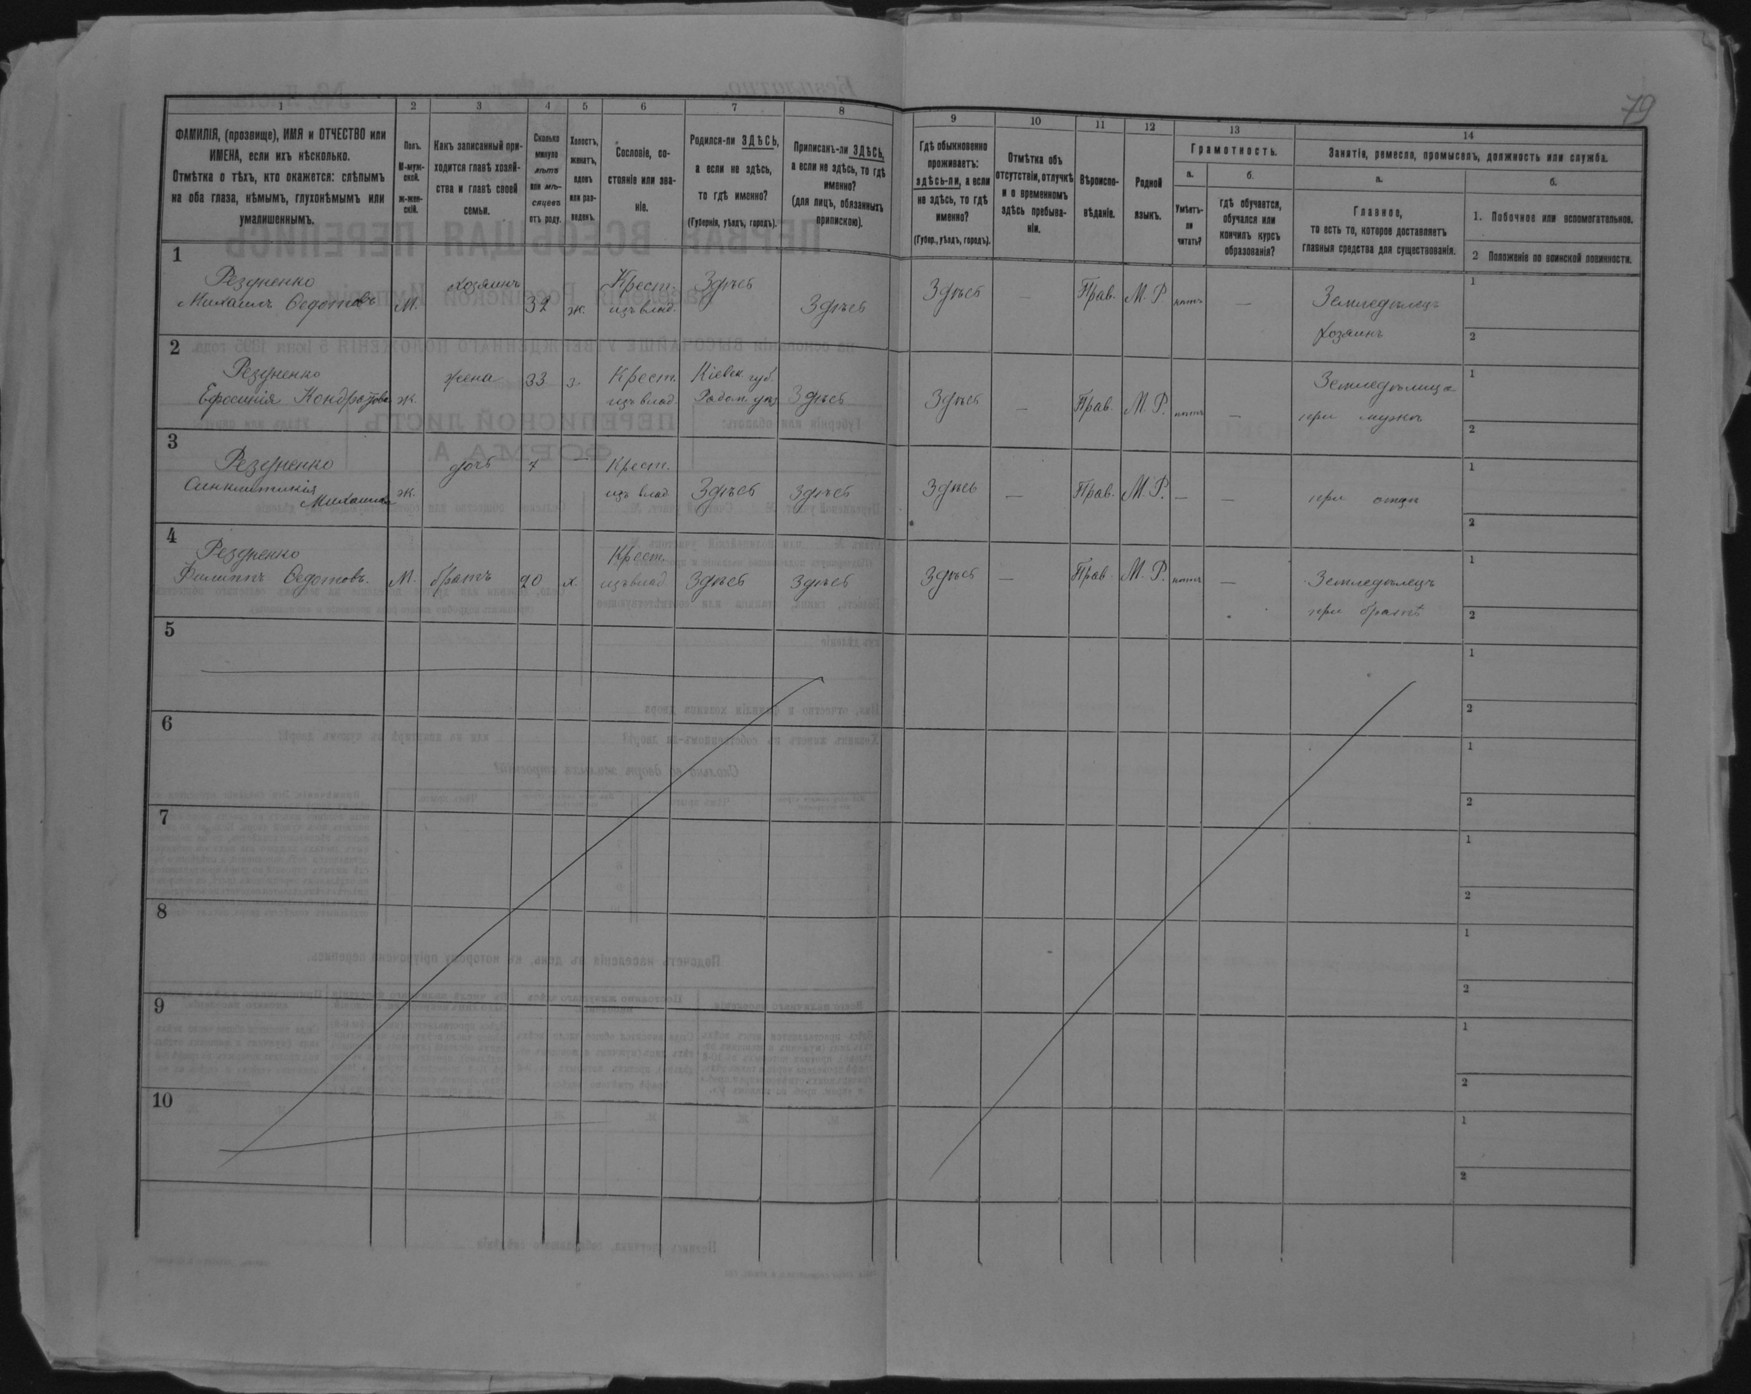 79
1
2
3
4
5
6
7
8
9
10
11
12
13
14
ФАМИЛІЯ, (прозвище), ИМЯ и ОТЧЕСТВО или
ИМЕНА, если ихъ нѣсколько.
Отмѣтка о тѣхъ, кто окажется: слѣпымъ
на оба глаза, нѣмымъ, глухонѣмымъ или
умалишеннымъ.
Полъ.
М-муж-
ской.
ж-жен-
скій.
Какъ записанный при-
ходится главѣ хозяй-
ства и главѣ своей
семьи.
Сколько
минуло
лѣтъ
или мѣ-
сяцевъ
отъ роду.
Холостъ,
женатъ,
вдовъ
или раз-
веденъ.
Сословіе, со-
стояніе или зва-
ніе.
Родился-ли ЗДѢСЬ,
а если не здѣсь,
то гдѣ именно?
(Губернія, уѣздъ, городъ).
Приписанъ-ли ЗДѢСЬ,
а если не здѣсь, то гдѣ
именно?
(для лицъ, обязанныхъ
припискою).
Гдѣ обыкновенно
проживаетъ:
здѣсь-ли, а если
не здѣсь, то гдѣ
именно?
(Губер., уѣздъ, городъ).
Отмѣтка объ
отсутствіи, отлучкѣ
и о временномъ
здѣсь пребыва-
ніи.
Вѣроиспо-
вѣданіе.
Родной
языкъ.
Грамотность.
а.
Умѣетъ-
ли
читать?
б.
гдѣ обучается,
обучался или
кончилъ курсъ
образованія?
Занятіе, ремесло, промыселъ, должность или служба.
а.
Главное,
то есть то, которое доставляетъ
главныя средства для существованія.
б.
1. Побочное или вспомогательное.
2 Положеніе по воинской повинности.
1
Резуненко
Михаилъ Федотовъ
М.
хозяинъ
32
ж.
Крест.
изъ влад.
Здѣсь
Здѣсь
Здѣсь
—
Прав.
М. Р.
нѣтъ
—
Земледѣлецъ
хозяинъ
1
2
2
Резуненко
Ефросинія Кондратова
ж.
жена
33
з.
Крест.
изъ влад.
Кіевск. губ.
Радом. уѣз
Здѣсь
Здѣсь
—
Прав.
М. Р.
нѣтъ
—
Земледѣлица
при мужѣ
1
2
3
Резуненко
Синклитикія
Михаилова
ж.
дочь
7
—
Крест.
изъ влад
Здѣсь
Здѣсь
Здѣсь
—
Прав.
М. Р.
—
—
при отцѣ
1
2
4
Резуненко
Филиппъ Федотовъ.
М.
братъ
20
х.
Крест.
изъ влад.
Здѣсь
Здѣсь
Здѣсь
—
Прав.
М. Р.
нѣтъ
—
Земледѣлецъ
при братѣ
1
2
5
1
2
6
1
2
7
1
2
8
1
2
9
1
2
10
1
2